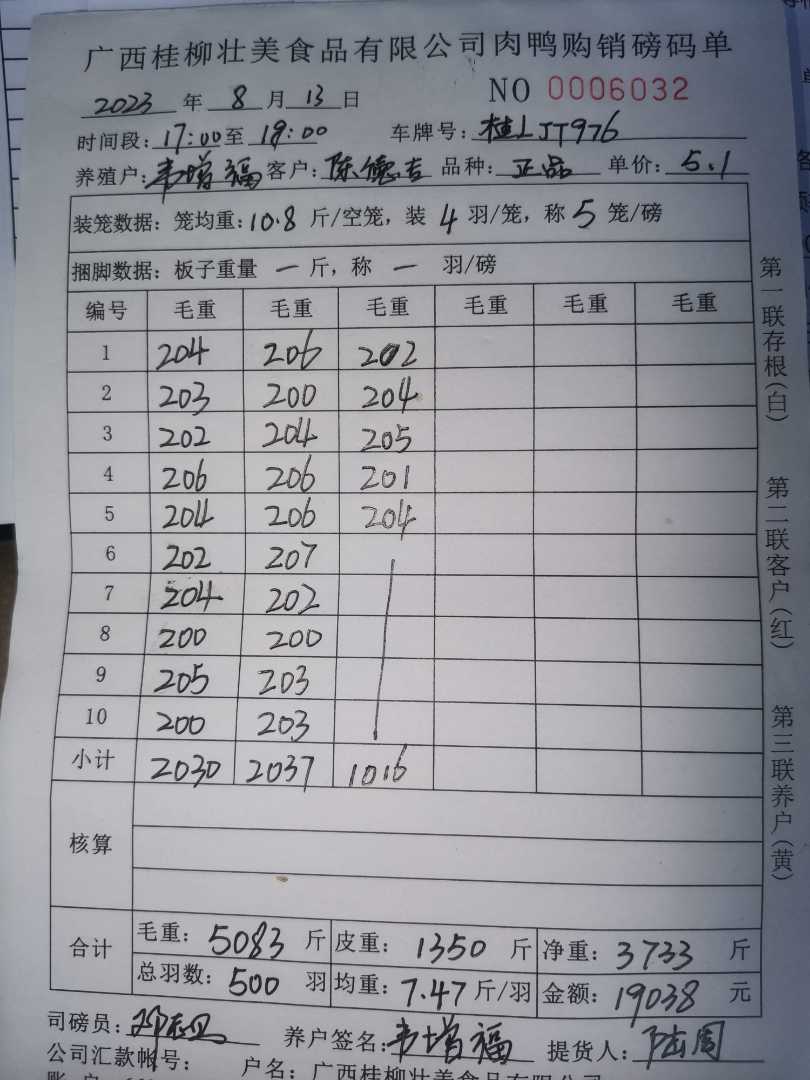 广西桂柳壮美食品有限公司肉鸭购销磅码单
NO 0006032
2023 年 8 月 13 日
时间段: 17:00 至 19:00 车牌号: 桂LJT976
养殖户: 韦增福 客户: 陈德吉 品种: 正品 单价: 5.1
装笼数据: 笼均重: 10.8 斤/空笼, 装 4 羽/笼, 称 5 笼/磅
捆脚数据: 板子重量 一 斤, 称 一 羽/磅
编号 毛重 毛重 毛重 毛重 毛重 毛重
1 204 206 202
2 203 200 204
3 202 204 205
4 206 206 201
5 204 206 204
6 202 207
7 204 202
8 200 200
9 205 203
10 200 203
小计 2030 2037 1016
核算
合计 毛重: 5083 斤 皮重: 1350 斤 净重: 3733 斤
总羽数: 500 羽 均重: 7.47 斤/羽 金额: 19038 元
司磅员: 养户签名: 韦增福 提货人: 陆周
公司汇款帐号: 户名: 广西桂柳壮美食品有限公司
第一联存根(白)
第二联客户(红)
第三联养户(黄)